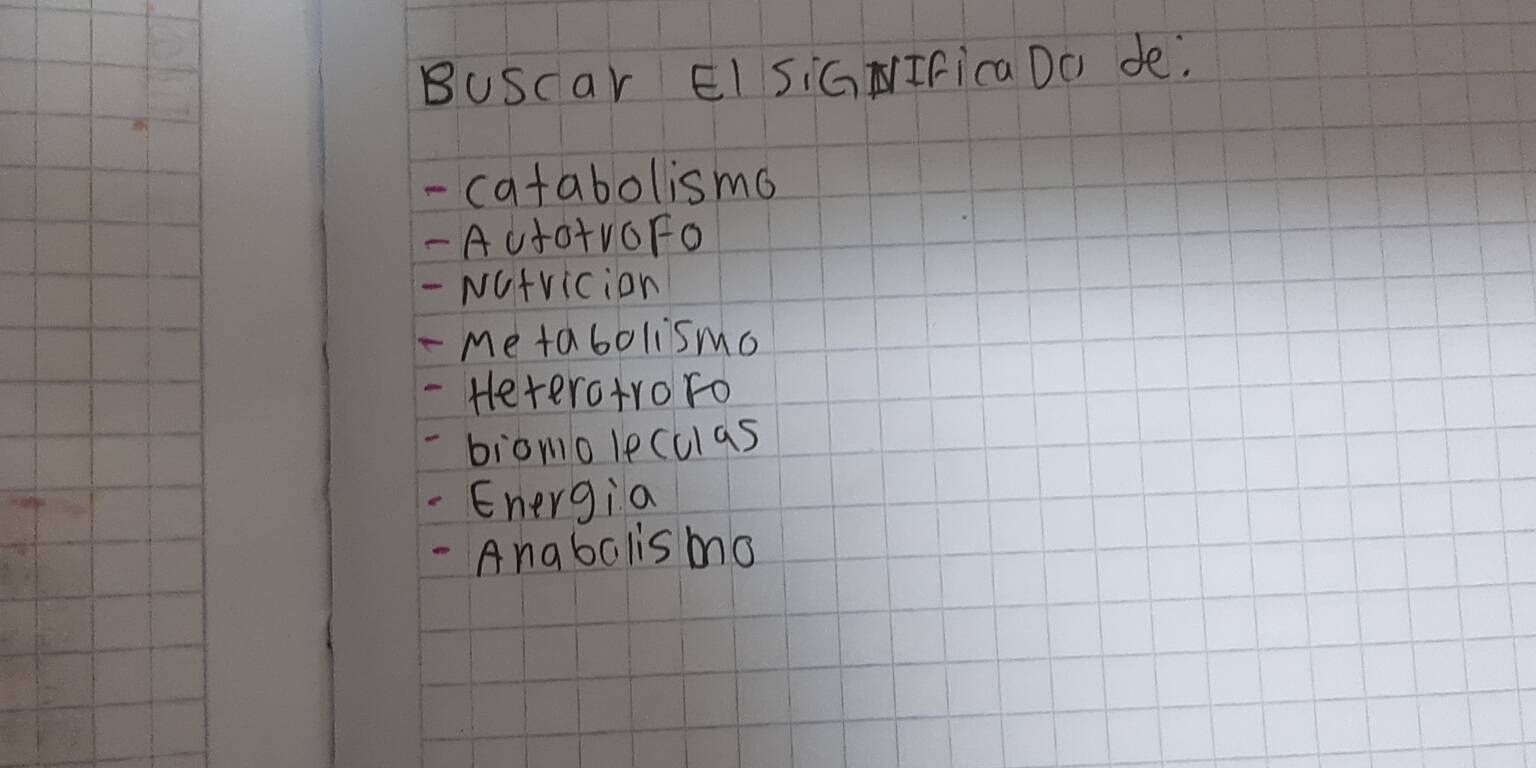 Buscar El SiGNIFicaDo de:
- catabolismo
- AutotroFo
- Nutricion
- Metabolismo
- HeterotroFo
- biomoleculas
- Energia
- Anabolismo